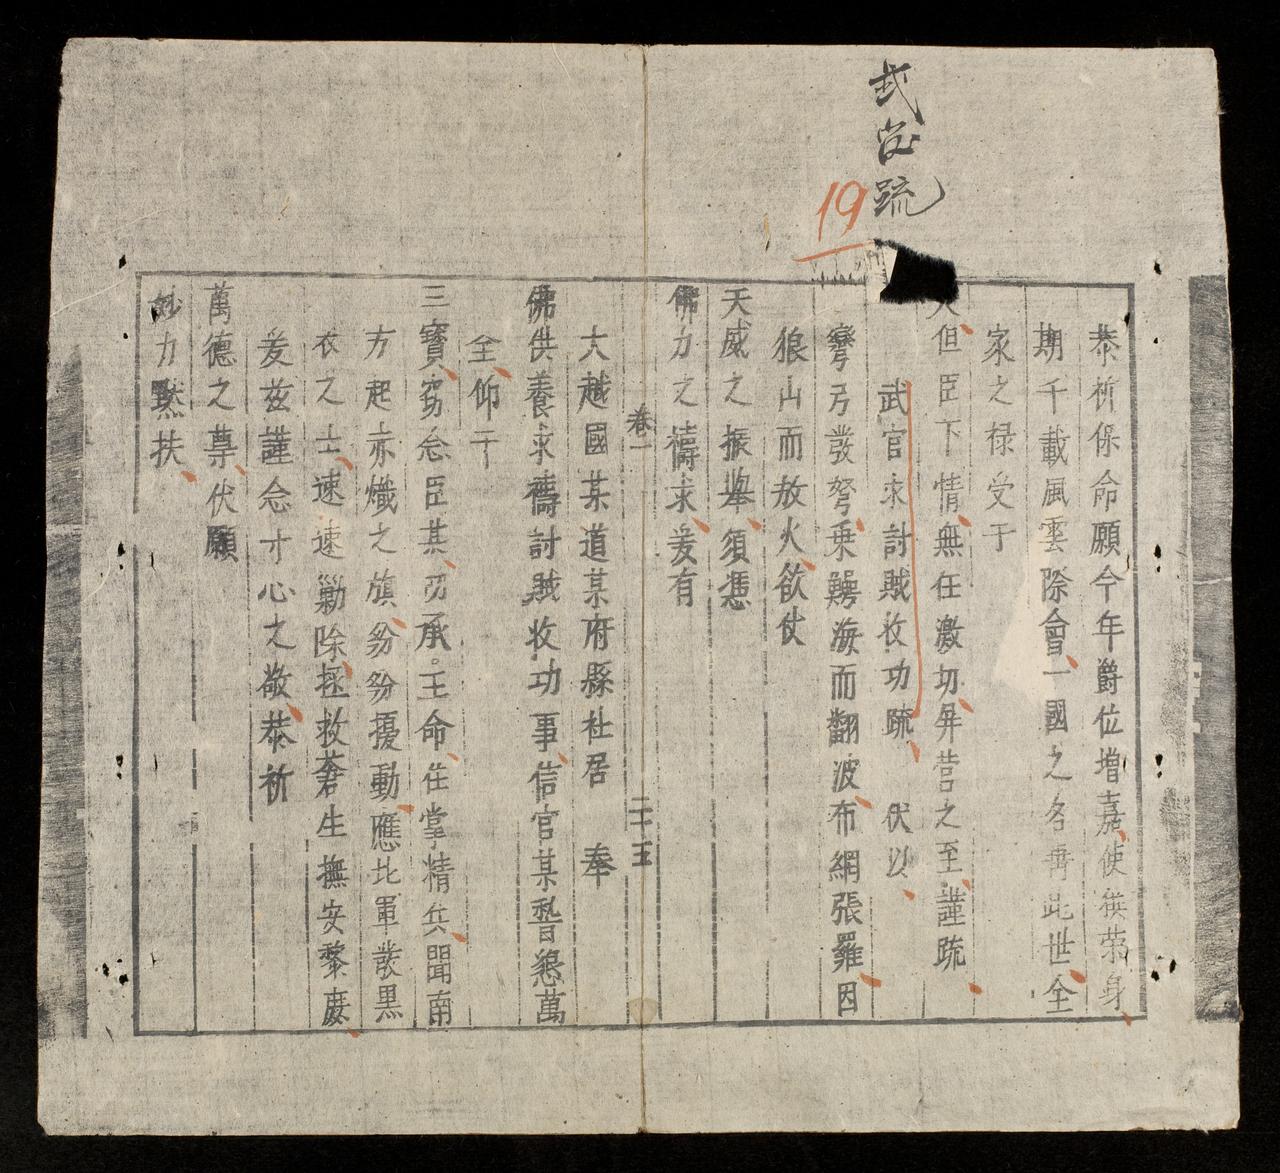 武官疏
19
恭祈保命願今年爵位增嘉使獲荣身
期千載風雲際會一國之名再此世全
家之禄受于
天但臣下情無任激切屏营之至謹疏
武官求討賊收功疏 伏以
彎弓發弩乗鰐海而翻波布網張羅因
狼山而放火欲仗
天威之振舉須憑
佛力之禱求爰有
卷一 二十五
大越國某道某府縣社居 奉
佛供養求禱討賊收功事信官某晢懇萬
全仰干
三寶窃念臣某叨承王命任掌精兵聞南
方起赤熾之旗紛紛擾動應北軍發黑
衣之士速速勦除拯救蒼生撫安黎庶
爰兹謹念寸心之敬恭祈
萬德之尊伏願
妙力黙扶